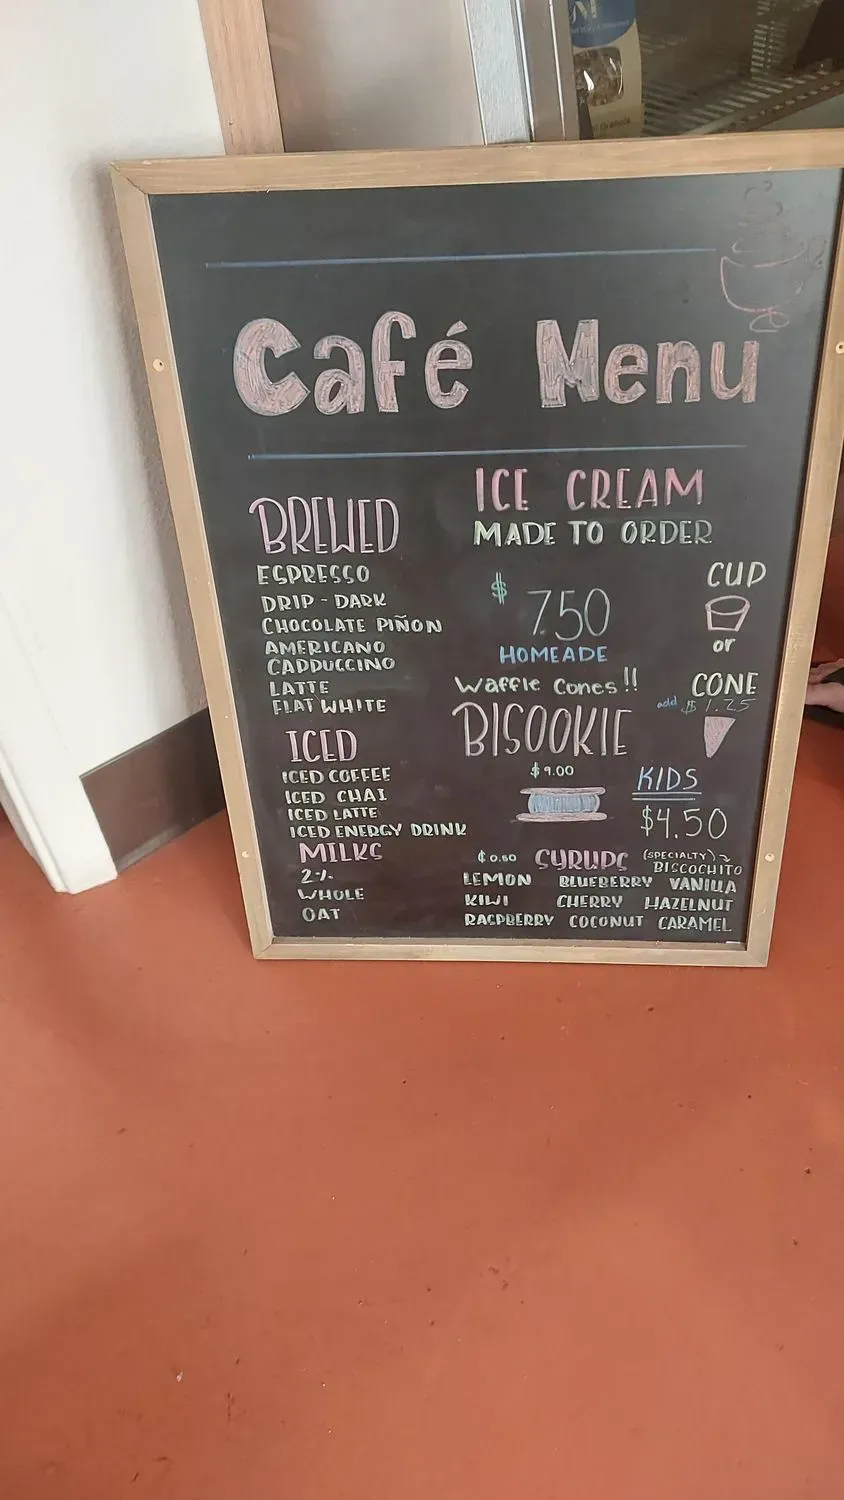 Café Menu
BREWED
ESPRESSO
DRIP - DARK
CHOCOLATE PIÑON
AMERICANO
CAPPUCCINO
LATTE
FLAT WHITE
ICED
ICED COFFEE
ICED CHAI
ICED LATTE
ICED ENERGY DRINK
MILKS
2%
WHOLE
OAT
ICE CREAM
MADE TO ORDER
$ 7.50
HOMEADE
Waffle Cones!!
CUP
or
CONE
add $1.25
BISOOKIE
$9.00
KIDS
$4.50
¢0.50 SYRUPS (SPECIALTY)
BISCOCHITO
LEMON BLUEBERRY VANILLA
KIWI CHERRY HAZELNUT
RASPBERRY COCONUT CARAMEL